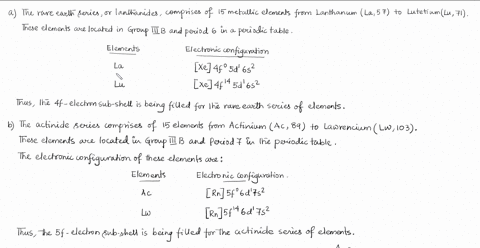 a) The rare earth series, or lanthanides, comprises of 15 metallic elements from Lanthanum (La, 57) to Lutetium (Lu, 71).
These elements are located in Group III B and period 6 in a periodic table.
Elements Electronic configuration
La [Xe] 4f⁰ 5d¹ 6s²
Lu [Xe] 4f¹⁴ 5d¹ 6s²
Thus, the 4f-electron sub-shell is being filled for the rare earth series of elements.
b) The actinide series comprises of 15 elements from Actinium (Ac, 89) to Lawrencium (LW, 103).
These elements are located in Group III B and Period 7 in the periodic table.
The electronic configuration of these elements are:
Elements Electronic configuration.
Ac [Rn] 5f⁰ 6d¹ 7s²
Lw [Rn] 5f¹⁴ 6d¹ 7s²
Thus, the 5f-electron sub-shell is being filled for the actinide series of elements.